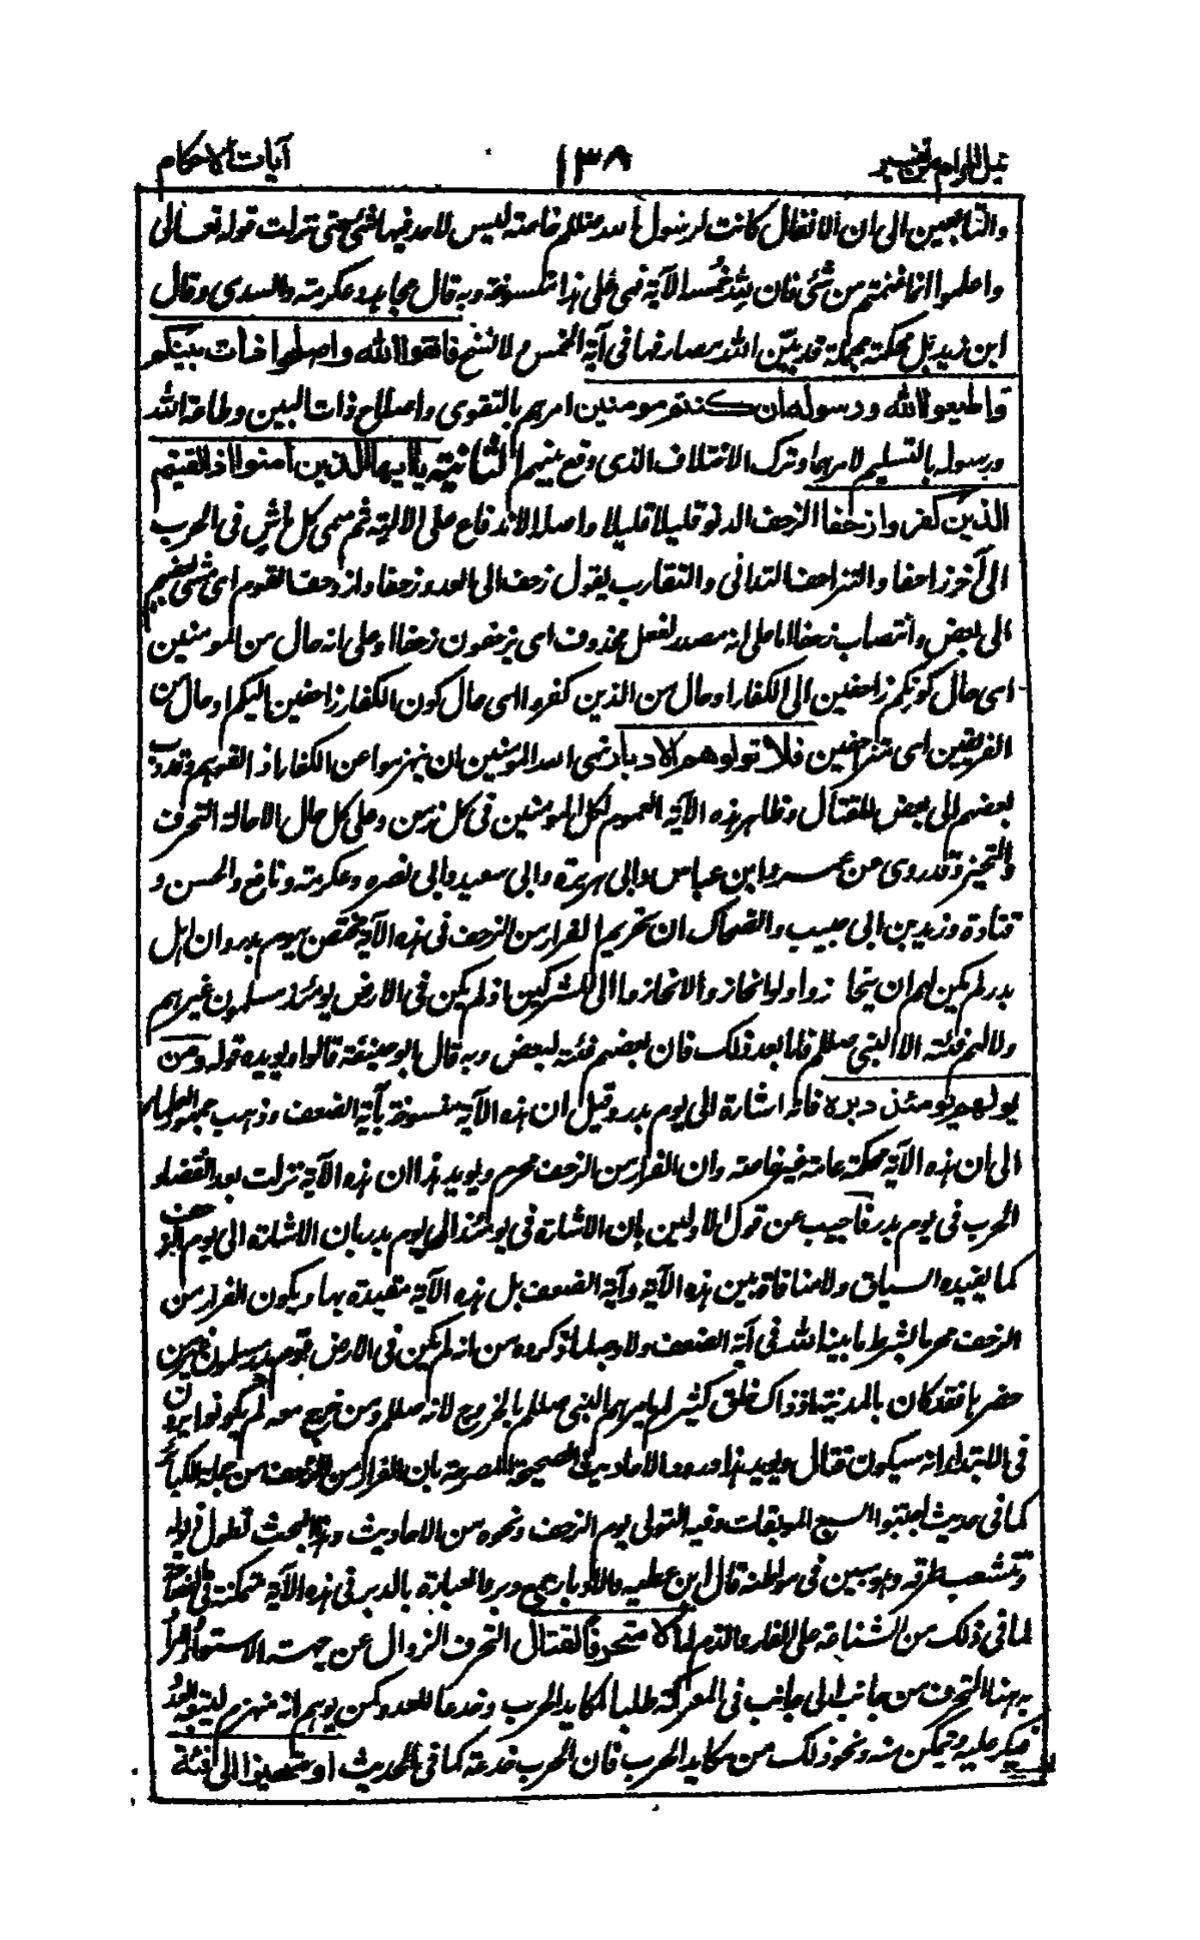 نيل المرام من تفسير ١٣٨ آيات الاحكام
والتابعين الى ان الانفال كانت لرسول الله صللم خاصته ليس لاحد فيها شئ حتى نزلت قوله تعالى
واعلموا انما غنمتم من شئ فان لله خمسه الآية فهى على هذا منسوخة وبه قال مجاهد وعكرمته والسدى وقال
ابن زيد بل محكمة مجملة قد بيّن الله مصارفها فى آية الخمس ولا نسخ فاتقوا الله واصلحوا ذات بينكم
واطيعوا الله ورسوله ان كنتم مومنين امرهم بالتقوى واصلاح ذات البين وطاعة الله
ورسوله بالتسليم لامرهما وترك الاختلاف الذى وقع بينهم الثانية يا ايها الذين آمنوا اذا لقيتم
الذين كفروا زحفا الزحف الدنو قليلا قليلا واصله الاندفاع على الالية ثم سمى كل ماش فى الحرب
الى آخر زاحفا والتزاحف التدانى والتقارب يقول زحف الى العدو زحفا وازدحف القوم اى مشى بعضهم
الى بعض وانتصاب زحفا اما على انه مصدر لفعل محذوف اى يزحفون زحفا او على انه حال من المومنين
اى حال كونكم زاحفين الى الكفار او حال من الذين كفروا اى حال كون الكفار زاحفين اليكم او حال من
الفريقين اى متزاحفين فلا تولوهم الادبار نهى الله المومنين ان ينهزموا عن الكفار اذا لقوهم وقد دب
بعضهم الى بعض للقتال وظاهر هذه الآية العموم لكل المومنين فى كل زمن وعلى كل حال الا حالة التحرف
والتحيز وقد روى عن عمر وابن عباس وابى هريرة وابى سعيد وابى نضره وعكرمته ونافع والحسن و
قتادة وزيد بن ابى حبيب والضحاك ان تحريم الفرار من الزحف فى هذه الآية مختص بيوم بدر وان اهل
بدر لم يكن لهم ان ينحازوا ولو انحازوا لانحازوا الى المشركين اذ لم يكن فى الارض يومئذ مسلمون غيرهم
ولا لهم فئته الا النبى صللم فاما بعد ذلك فان بعضهم فئة لبعض وبه قال ابو حنيفة قالوا ويويده قوله ومن
يولهم يومئذ دبره فانه اشارة الى يوم بدر وقيل ان هذه الآية منسوخة بآية الضعف وذهب جمهور العلماء
الى ان هذه الآية محكمة عامة غير خاصته وان الفرار من الزحف محرم ويويد هذا ان هذه الآية نزلت بعد انقضاء
الحرب فى يوم بدر فاجيب عن قول الاولين بان الاشارة فى يومئذ الى يوم بدر بان الاشارة الى يوم الزحف
كما يفيده السياق ولا منافاة بين هذه الآية وآية الضعف بل هذه الآية مقيدة بها ويكون الفرار من
الزحف محرما بشرط ما بينه الله فى آية الضعف ولا وجه لما ذكروه من انه لم يكن فى الارض يوم بدر مسلمون غير من
حضرها فقد كان بالمدينة اذ ذاك خلق كثير لم يامرهم النبى صللم بالخروج لانه صللم ومن خرج معه لم يكونوا يرون
فى الابتداء انه سيكون قتال ويويد هذا ورود الاحاديث الصحيحة المصرحة بان الفرار من الزحف من جملة الكبائر
كما فى حديث اجتنبوا السبع الموبقات وفيه التولى يوم الزحف ونحوه من الاحاديث وهذا البحث تطول ذيوله
وتتشعب طرقه وهو مبين فى مواطنه قال ابن عطيه والادبار جمع دبر والعبارة بالدبر فى هذه الآية متمكنة فى الفصاحة
لما فى ذلك من الشناعة على الفار والذم له الا متحرفا لقتال التحرف الزوال عن جهته الاستواء والمراد
به هنا التحرف من جانب الى جانب فى المعركة طلبا لمكايد الحرب وخدعا للعدو كمن يوهم انه منهزم ليتبعه العدو
فيكر عليه ويتمكن منه ونحو ذلك من مكايد الحرب فان الحرب خدعة كما فى الحديث او متحيزا الى فئة